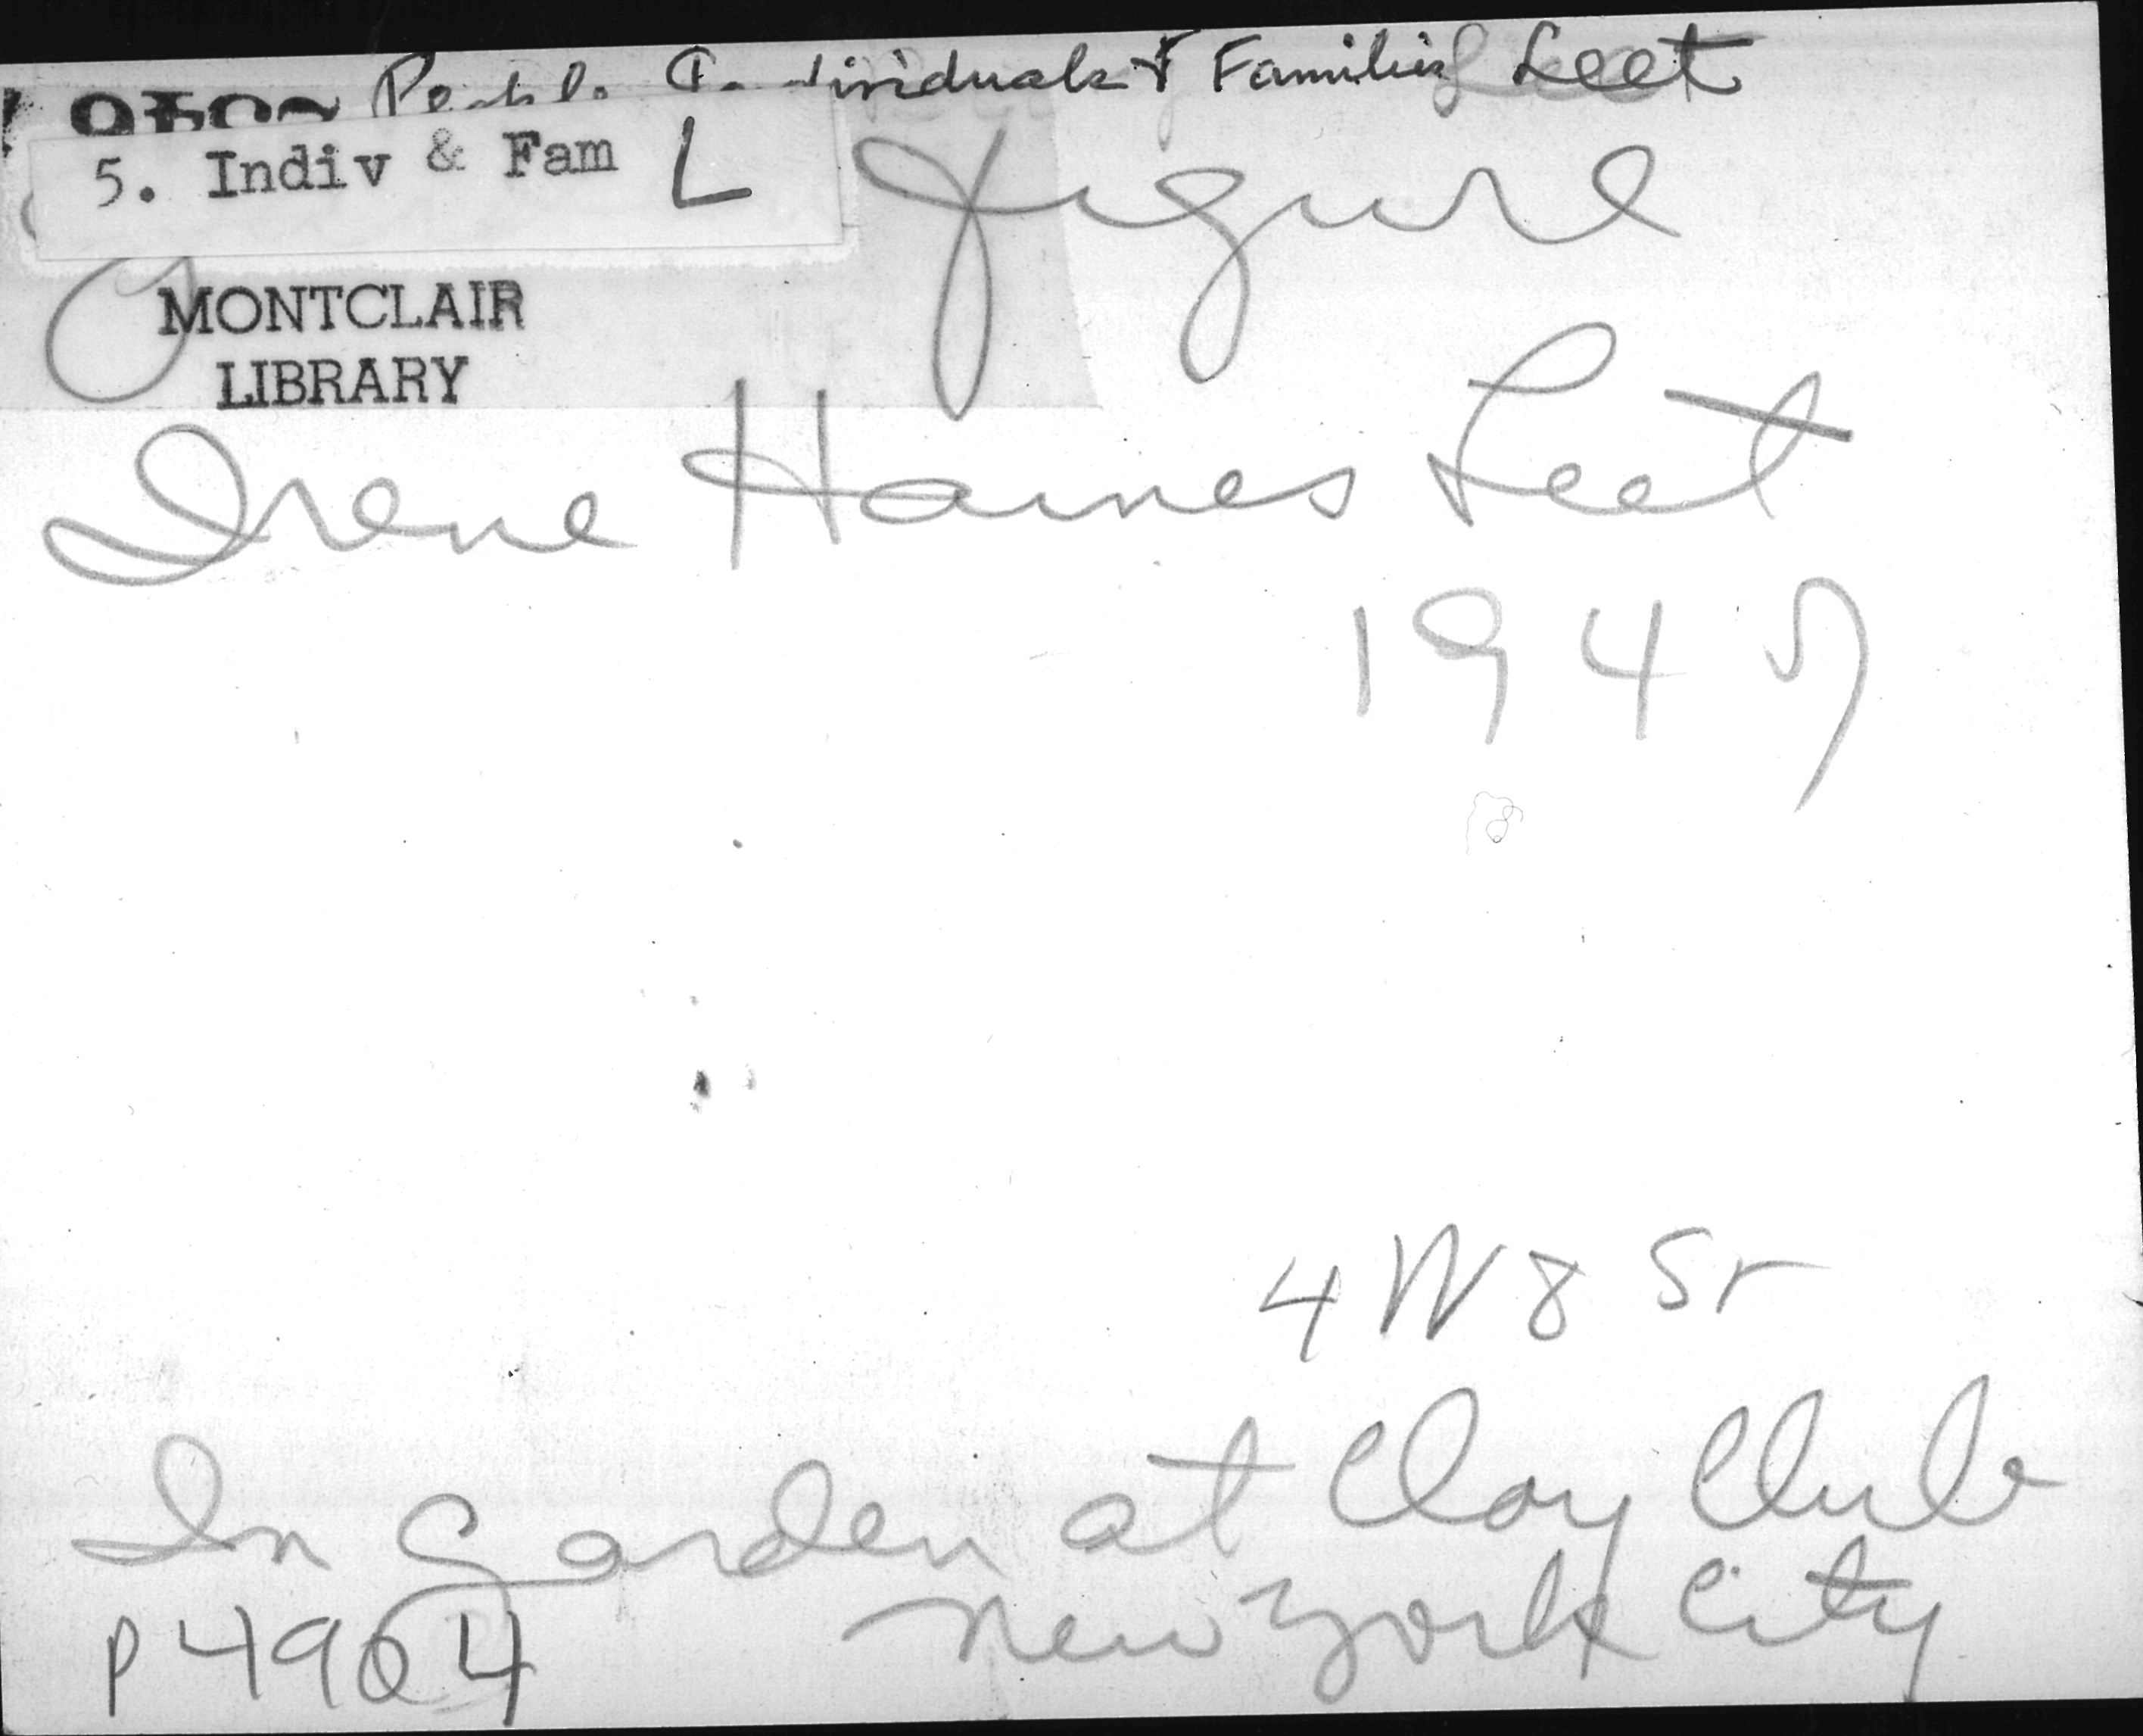 Individuals & Families Leet
5. Indiv & Fam L
figure
MONTCLAIR
LIBRARY
Irene Haines Leet
1947
4 W 8 St
In Garden at Clay Club
New York City
P4964